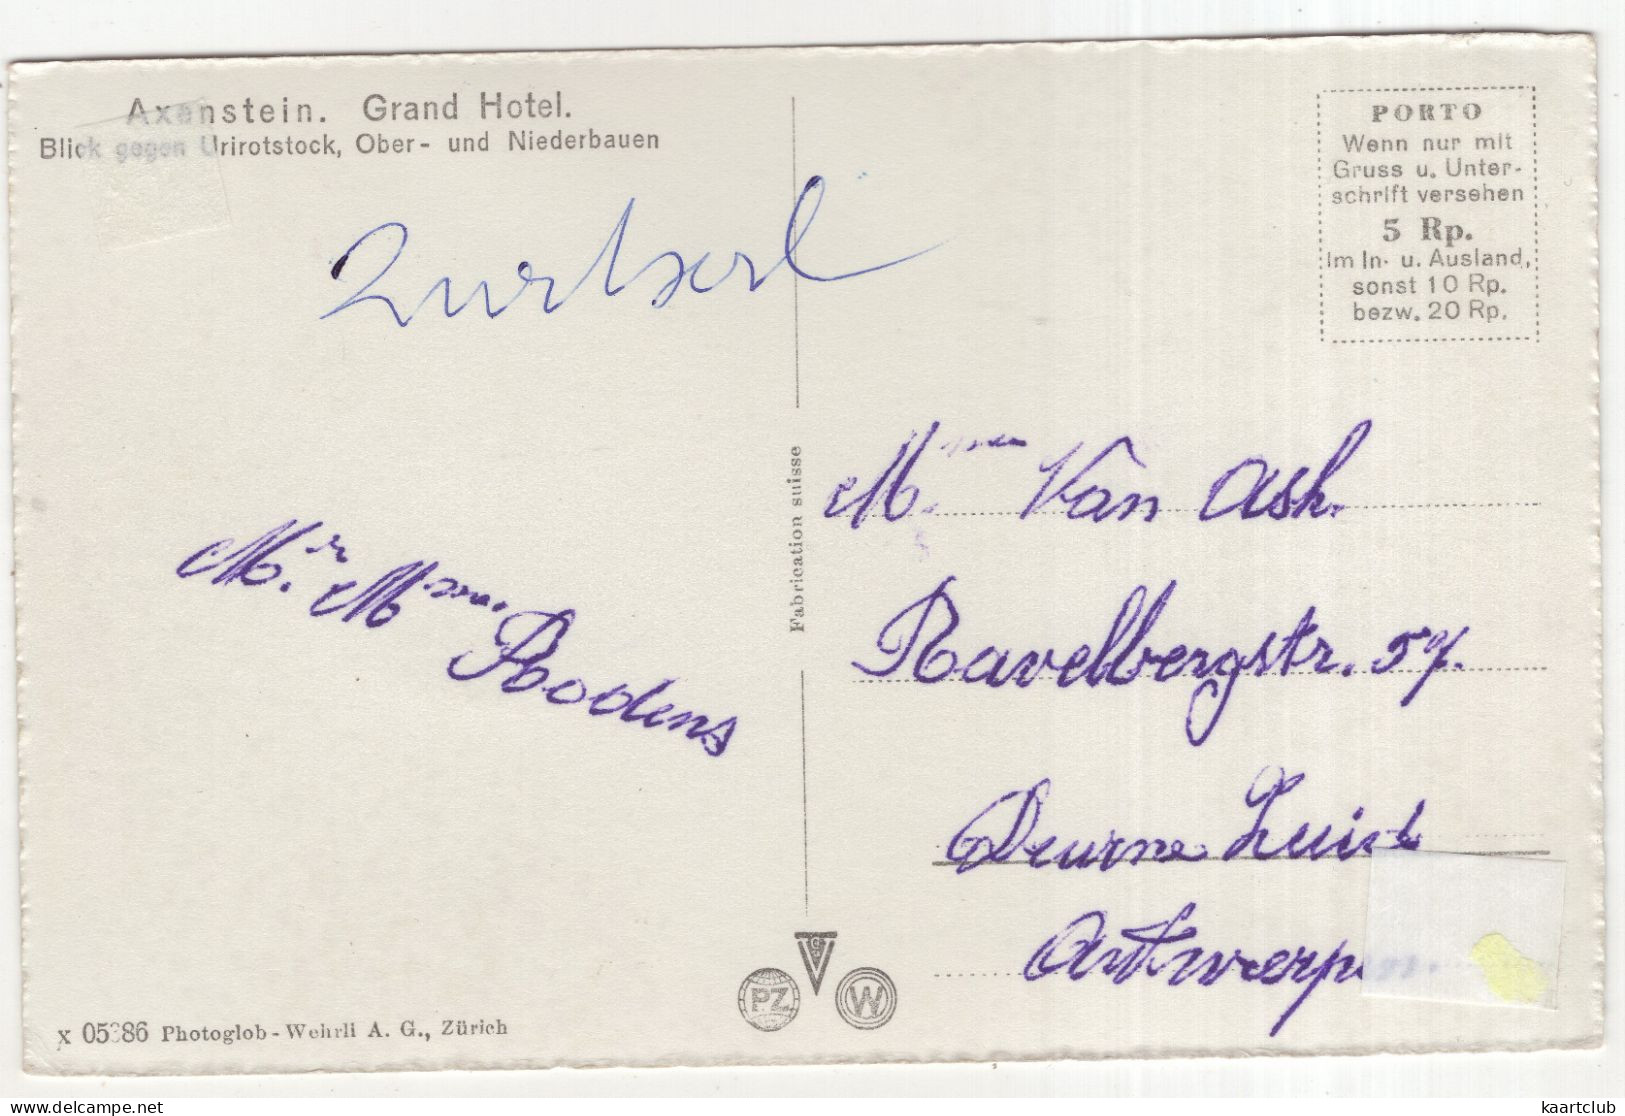 Axenstein. Grand Hotel.
Blick gegen Urirotstock, Ober- und Niederbauen
PORTO
Wenn nur mit
Gruss u. Unter-
schrift versehen
5 Rp.
Im In- u. Ausland,
sonst 10 Rp.
bezw. 20 Rp.
Mr Mme
Fabrication suisse
Van Ash.
Ravelbergstr. 57.
Deurne Zuid
Antwerpen.
C
PZ
W
x 05386 Photoglob-Wehrli A. G., Zürich
delcampe.net
kaartclub